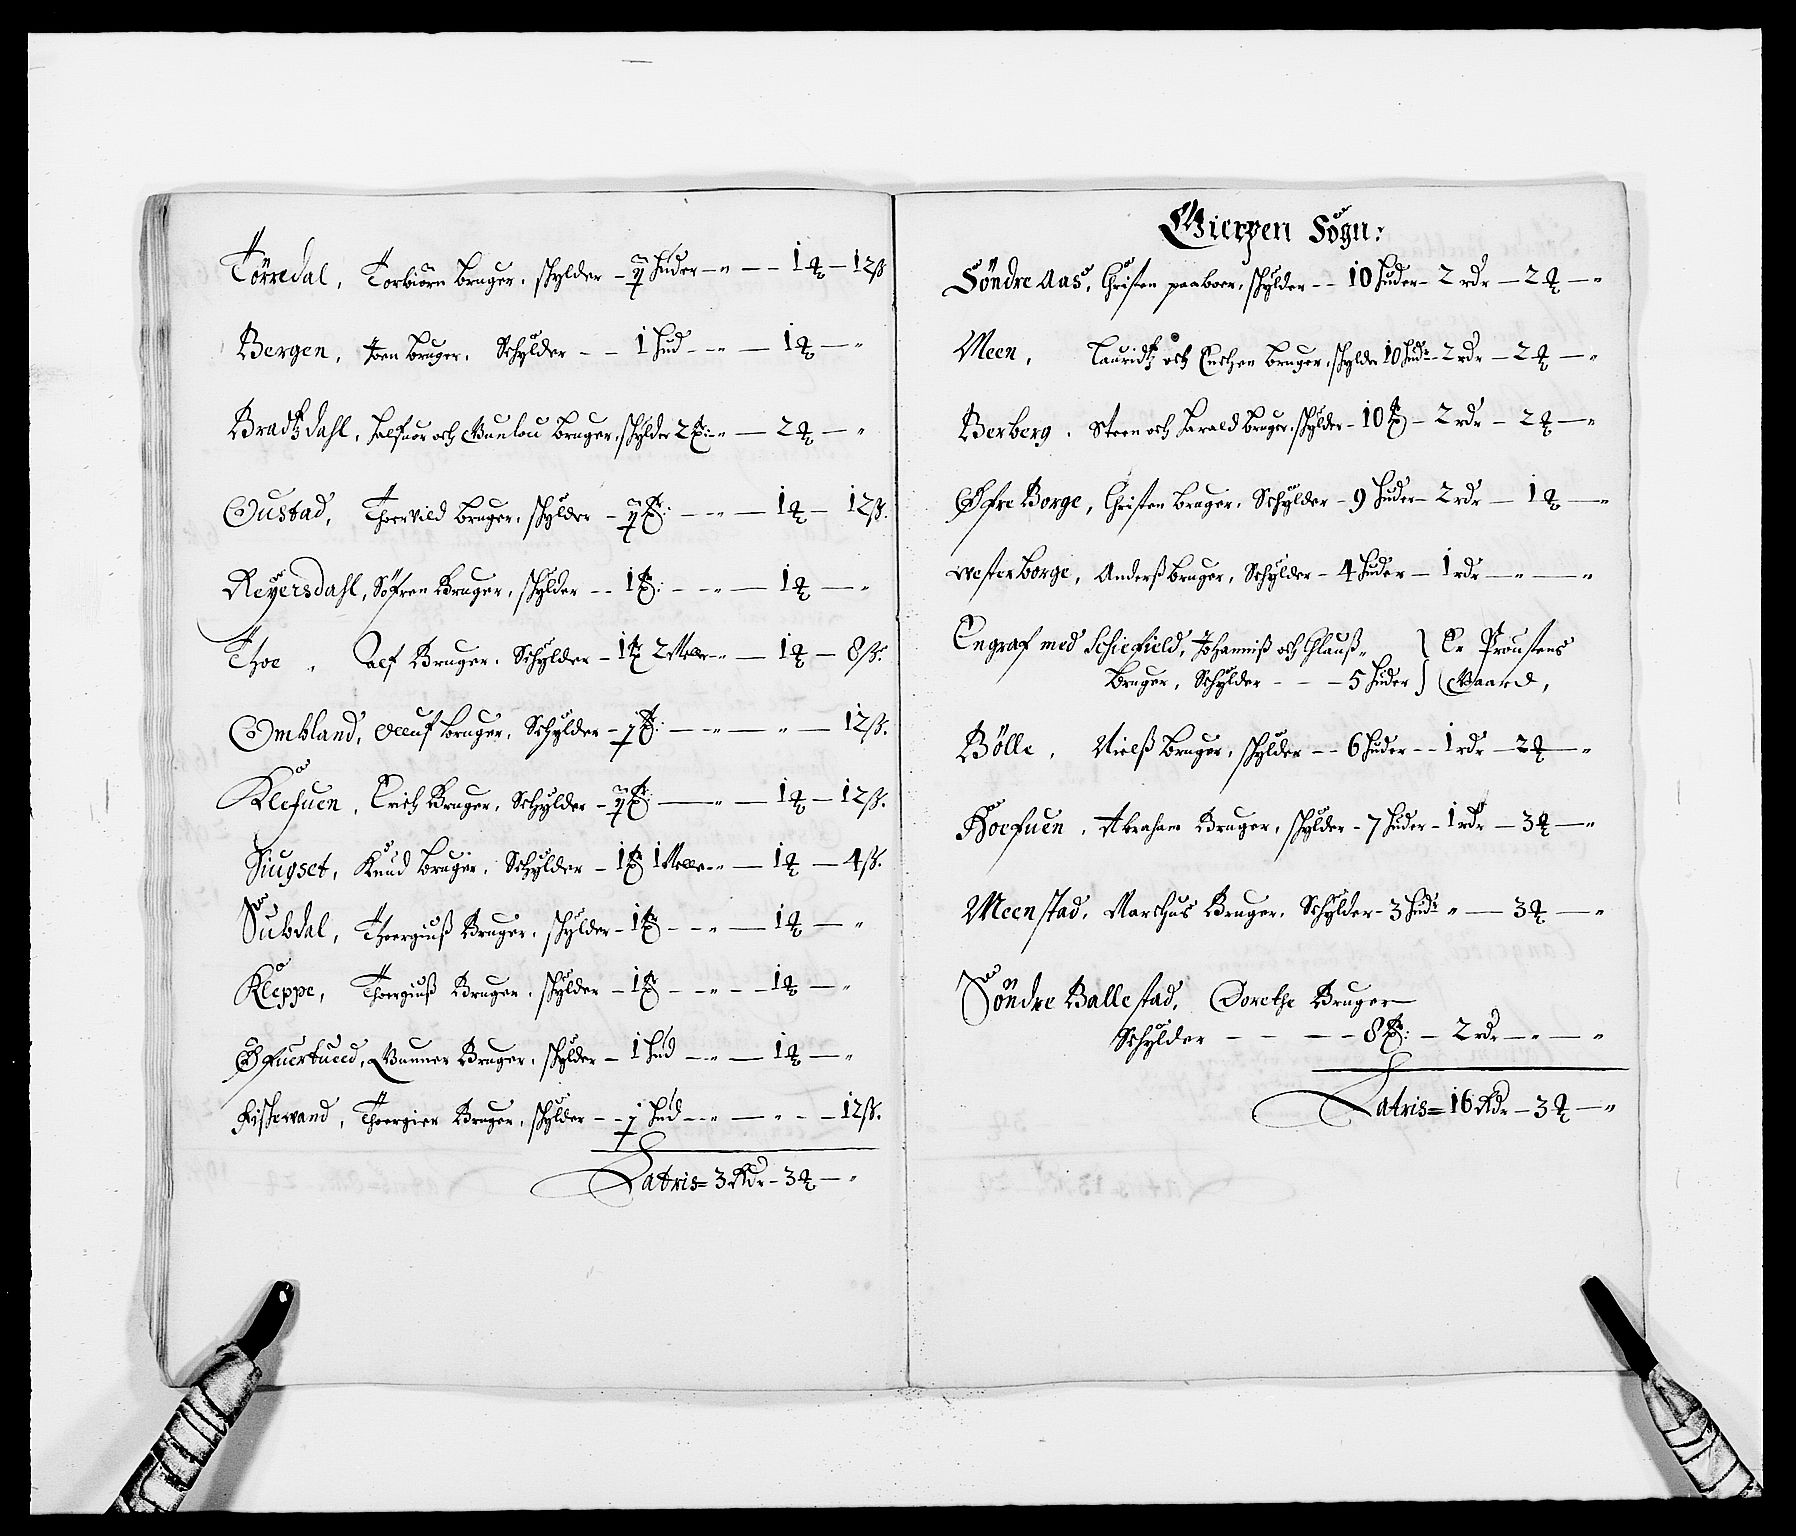 Törredal, Torbiörn bruger, schylder - huder - " - - 1 # - 12 ß
Bergen, Joen bruger, Schylder - - 1 hud - - " - 1 # - "
Bradtzdahl, Halfuor och Gunlou bruger, schylder 2 #: - " - 2 # - "
Oustad, Thoervild bruger, schylder - #: - " - 1 # - 12 ß.
Reyersdahl, Söfren Bruger, schylder - - 1 #: - " - 1 # - "
Thoe " Oalf Bruger, Schylder - 1 # 2 Meller - " - 1 # - 8 ß.
Ombland, Oluf bruger, Schylder - #: - " - " - 12 ß.
Klefuen, Erich Bruger, Schylder - #: - " - 1 # - 12 ß.
Siugset, Knud bruger, Schylder - 1 # 1 Meller - " - 1 # - 4 ß.
Subdal, Thoergiuß Bruger, schylder - 1 # - - " - 1 # - "
Kleppe, Thoergiuß Bruger, schylder - 1 # - - " - - 1 # - "
Gunner Bruger, schylder - 1 hud - " - 1 # - "
Fischevand, Thoergier Bruger, schylder - - hud - " - " - - 12 ß.
Latris = 3 Rdr - 3 # - "
Gierpen Sogn:
Söndre Aas, Christen paaboer, schylder - - 10 huder - 2 rdr - 2 # - "
Meen, Lauridtz och Enchen bruger, schylder 10 hudr - 2 rdr - 2 # - "
Berberg, Steen och Harald bruger, schylder - 10 # - 2 rdr - 2 # - "
Øfre Borge, Christen bruger, Schylder - 9 huder - 2 rdr - 1 # - "
Wester borge, Anderß bruger, Schylder - 4 huder - 1 rdr - " - "
Engraf med Schiefield, Johanniß och Clauß " } Er Proustens
Bruger, Schylder - - - 5 huder } Gaard,
Bölle, Nielß bruger, schylder - - 6 huder - - 1 rdr - 2 # - "
Hoefuen, Abraham Bruger, schylder - 7 huder - 1 rdr - 3 # - "
Meenstad, Marchus Bruger, Schylder - 3 hudr " - 3 # - "
Söndre Ballestad, Dorethe Bruger
Schylder - - - - 8 #: - 2 rdr - " - "
Latris = 16 Rdr - 3 # - "